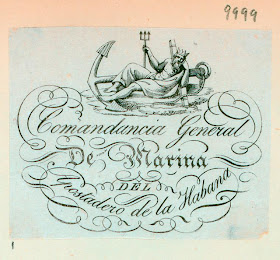 9999
Comandancia General
De Marina
DEL
Apostadero de la Habana
1